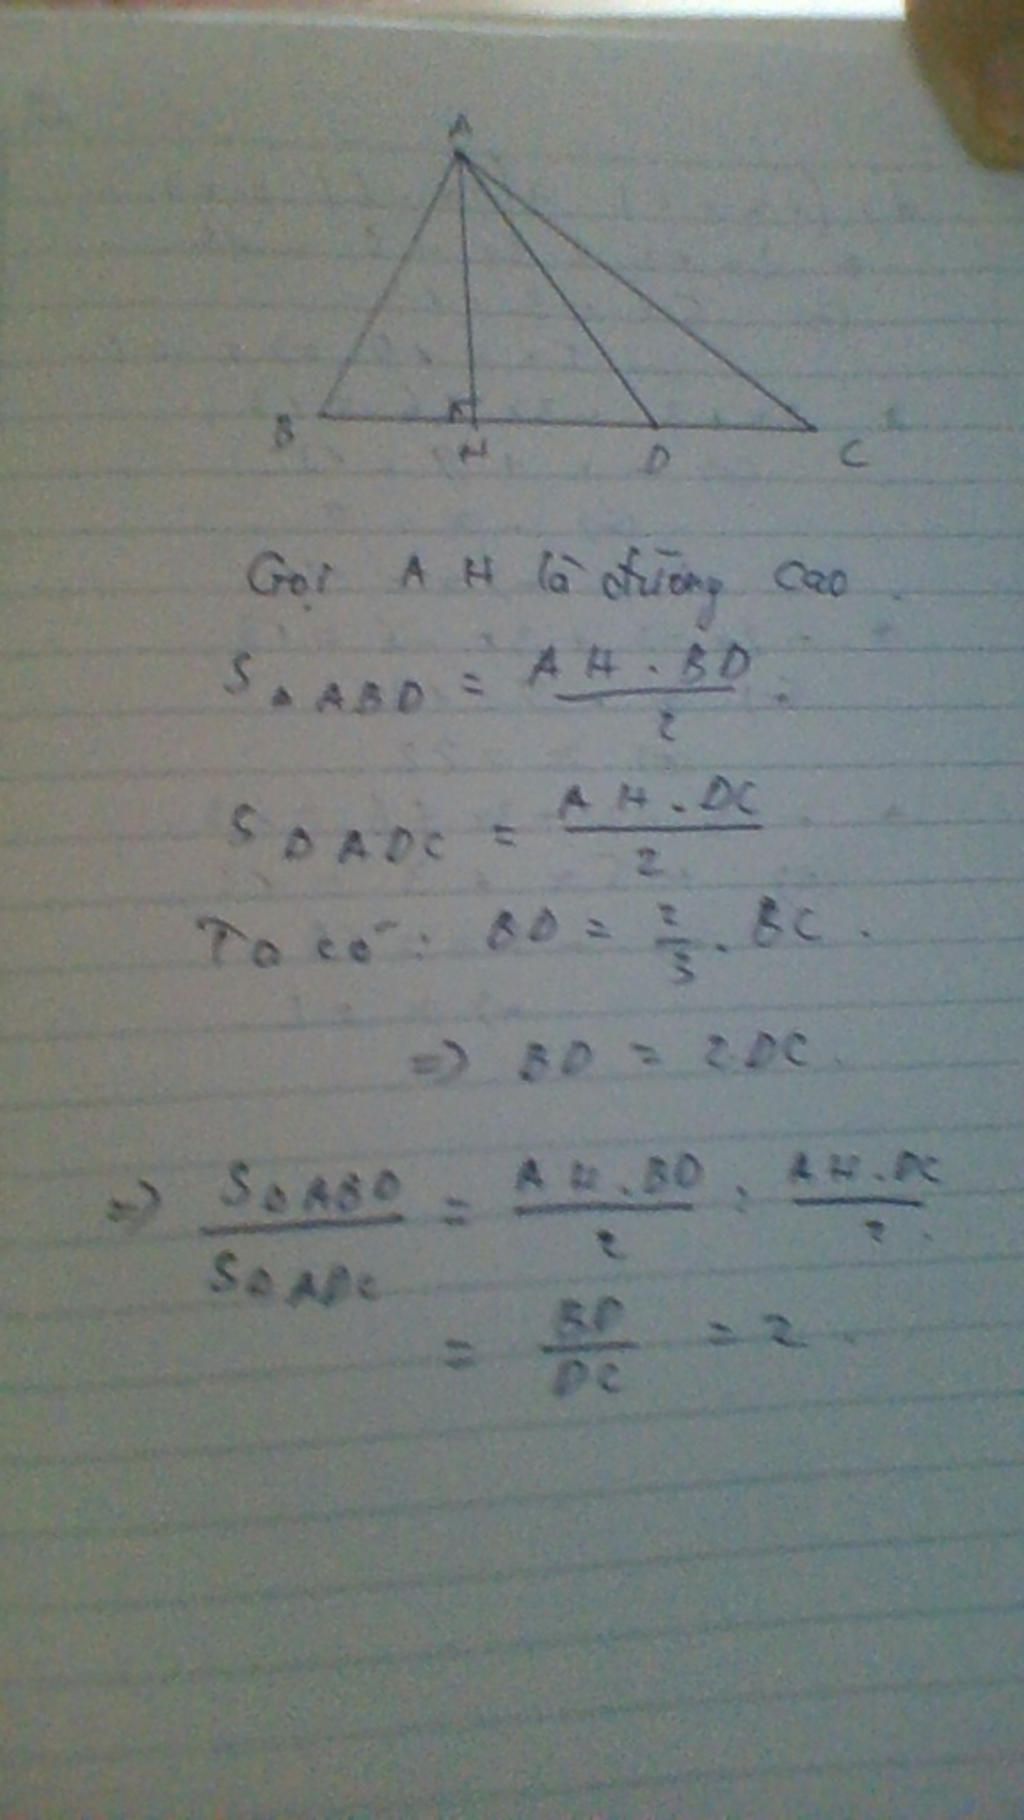 A
B H D C
Gọi AH là đường cao.
S△ABD = AH.BD / 2.
S△ADC = AH.DC / 2
Ta có: BD = 2/3. BC.
=> BD = 2DC.
=> S△ABD / S△ADC = AH.BD / 2 : AH.DC / 2.
= BD / DC = 2.